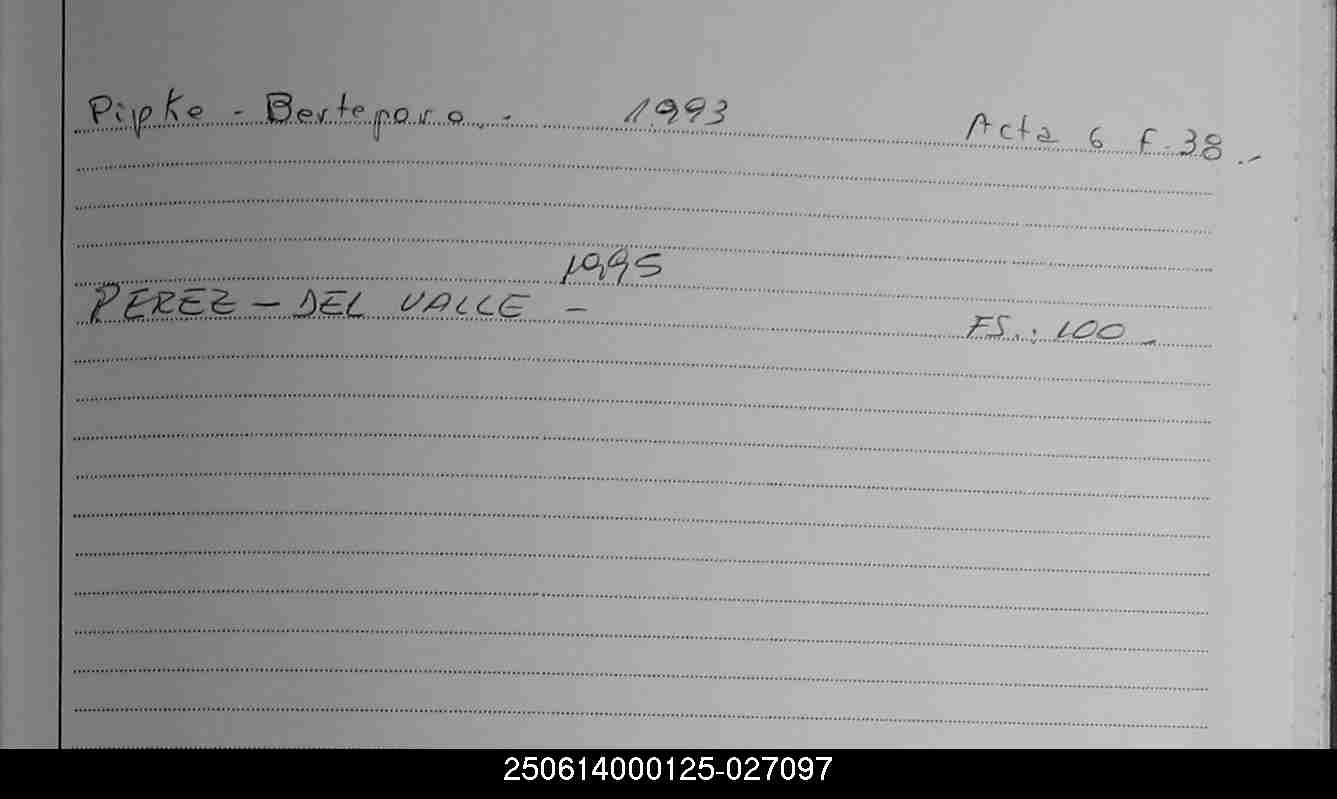 Pipke - Bertepora. - 1993 Acta 6 F. 38.-
1995
PEREZ - DEL VALLE - FS.: 100-
250614000125-027097